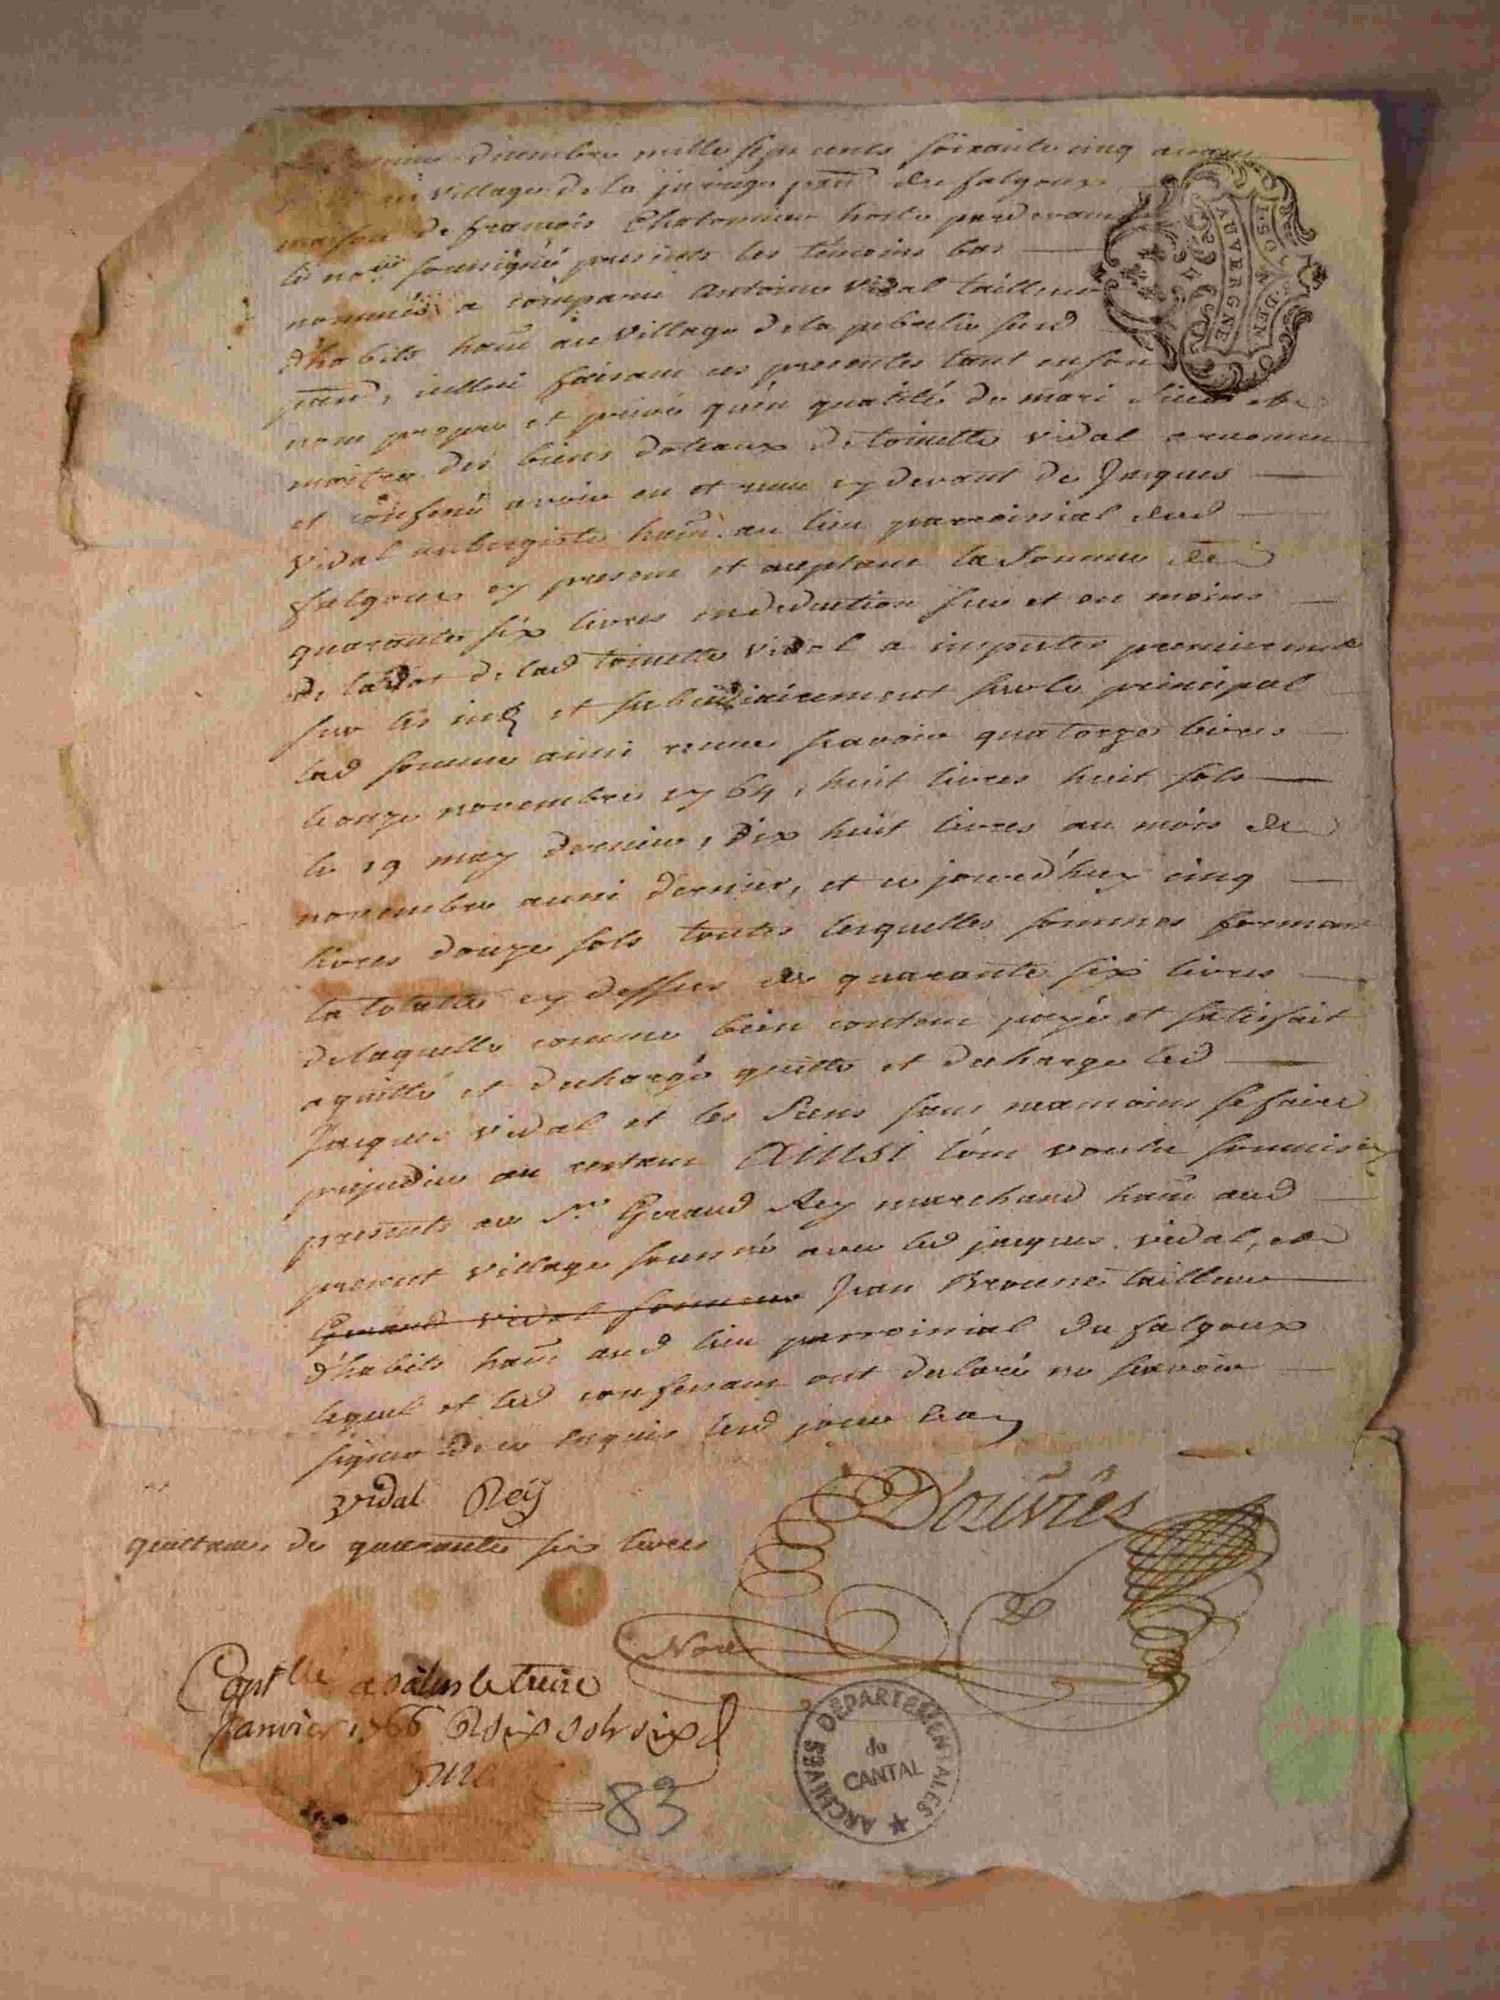 decembre mille sept cents soixante cinq avant
village de la jarrige psse du falgoux
maison de françois Chatonnier hoste pardevant
le nore soussigné presents les témoins bas
nommés a comparu Antoine vidal tailleur
d'habits hant au village de la susd
psse, icelui faisant ces presentes tant en son
nom propre et privé qu'en qualité de mari et
maitre des biens doteaux de toinette vidal a reconnu
et confessé avoir eu et recu cy devant de Jacques
vidal aubergiste hant au lieu parroissial dud
falgoux cy present et acceptant la somme de
quarante six livres en deduction sur et en moins
de la dot de lad toinette vidal a imputer premierement
sur les et subsidiairement sur le principal
lad somme ainsi recue scavoir quatorze livres
le onze novembre 1764, huit livres huit sols
le 19 may dernier, dix huit livres au mois de
novembre aussi dernier, et ce jourd'huy cinq
livres douze sols toutes lesquelles sommes formant
la totalle cy dessus de quarante six livres
de laquelle comme bien content payé et satisfait
a quitté et decharge quitte et decharge led
Jacques vidal et les siens sans neamoins se faire
prejudice au restant AINSI l'ont voulu
presents au sr Geraud Rey marchand hant aud
present village soussigné avec led jacques vidal, et
Geraud vidal Jean Brounes tailleur
d'habits hant aud lieu parroissial du falgoux
lequel et led confessant ont declaré ne scavoir
signer de ce enquis lesd jour et an
vidal Reÿ
Douvrés
quittance de quarante six livres
Nore
Contlle a salers le treize
Janvier 1766 R six sols six d
83
AUVERGNE
1. SOL
8. DEN
ARCHIVES DÉPARTEMENTALES
du
CANTAL
Aprogemere